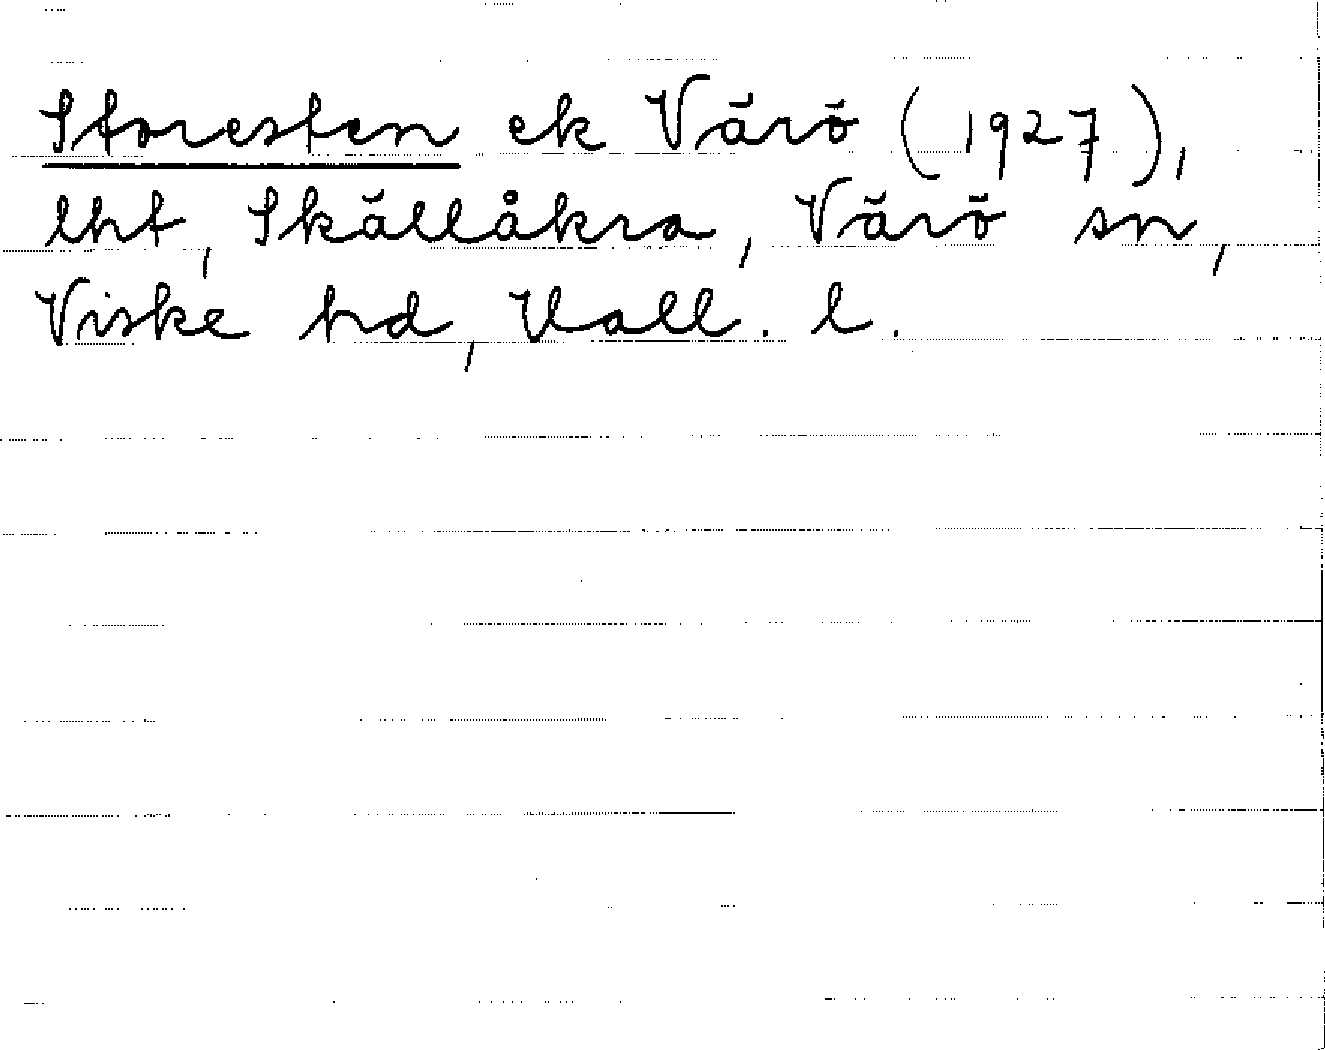 Storesten ek Värö (1927),
lht, Skällåkra, Värö sn,
Viske hd, Hall. l.